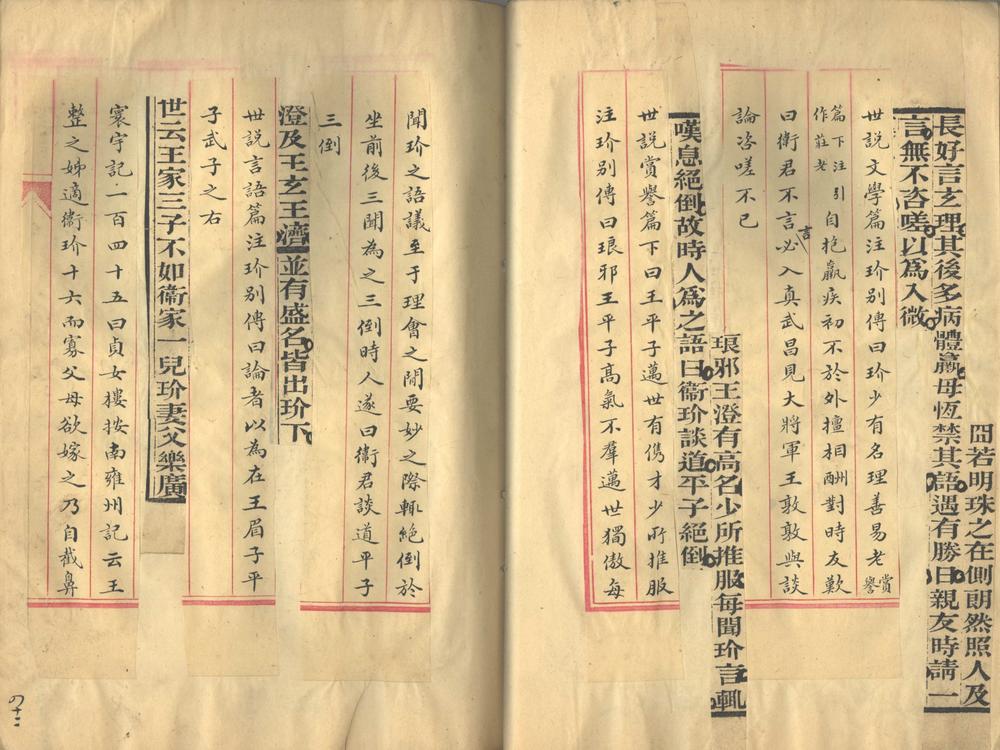 冏若明珠之在側朗然照人及
長好言玄理其後多病體羸母恆禁其語遇有勝日親友時請一
言無不咨嗟以爲入微
世説文學篇注玠别傳曰玠少有名理善易老賞譽
篇下注引作莊老自抱羸疾初不於外擅相酬對時友歎
曰衛君不言言必入真武昌見大將軍王敦敦與談
論咨嗟不已
琅邪王澄有高名少所推服每聞玠言輒
嘆息絕倒故時人爲之語曰衞玠談道平子絕倒
世説賞譽篇下曰王平子邁世有儁才少所推服
注玠别傳曰琅邪王平子高氣不羣邁世獨傲每
聞玠之語議至于理會之閒要妙之際輒絕倒於
坐前後三聞為之三倒時人遂曰衛君談道平子
三倒
澄及王玄王濟並有盛名皆出玠下
世説言語篇注玠别傳曰論者以為在王眉子平
子武子之右
世云王家三子不如衞家一兒玠妻父樂廣
寰宇記一百四十五曰貞女樓按南雍州記云王
整之姊適衛玠十六而寡父母欲嫁之乃自截鼻